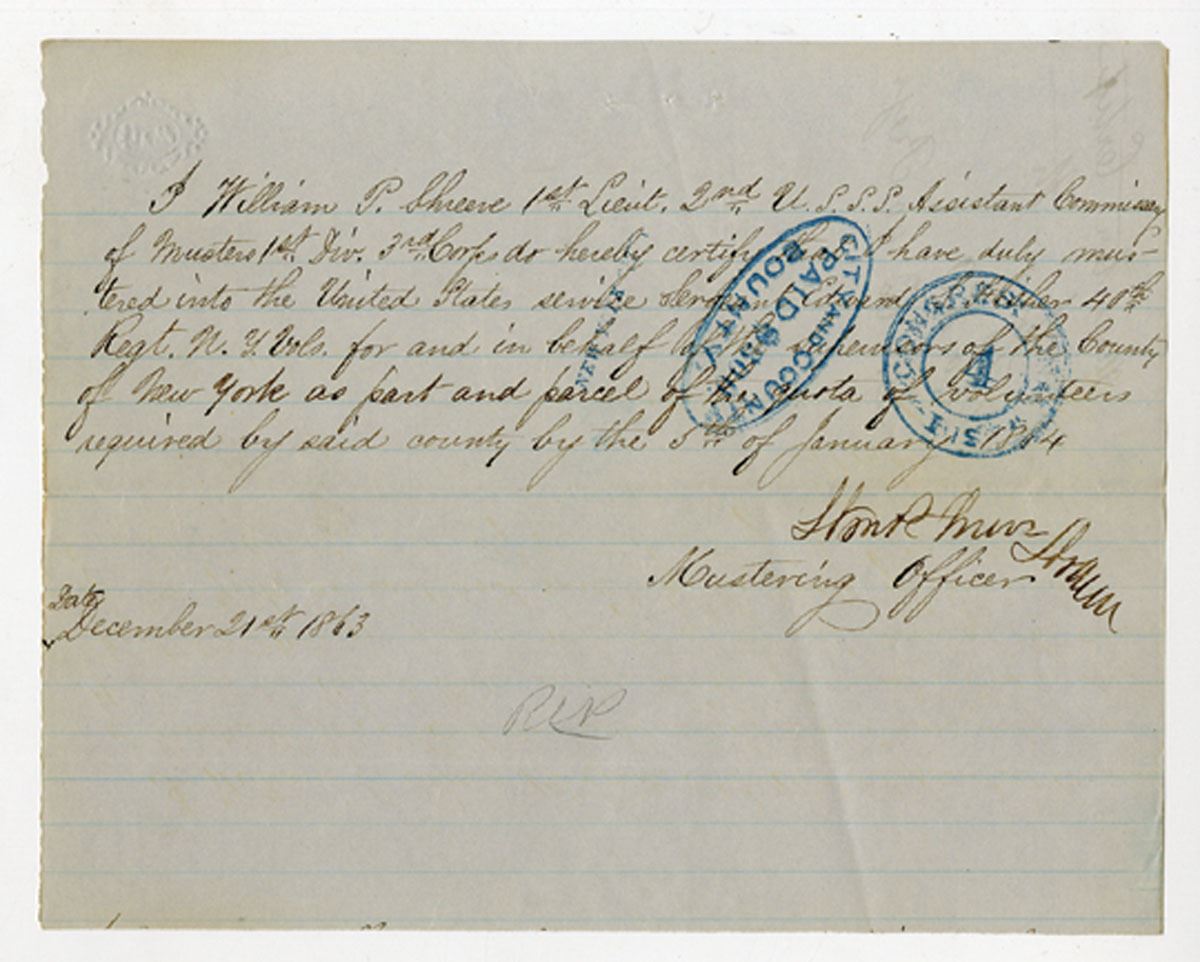 I William P. Shreeve 1st Lieut. 2nd U. S. S. S. Assistant Commissary
of Musters 1st Div. 3rd Corps do hereby certify that I have duly mus-
tered into the United States service Sergeant Edward 40th
Regt. N. Y. Vols. for and in behalf of the Supervisors of the County
of New York as part and parcel of the quota of Volunteers
required by said county by the 5th of January 1864
Mustering Officer
Date
December 21st 1863
CITY AND COUNTY
PAID $
BOUNTY
NEW YORK
CONGRESS
4
DIST